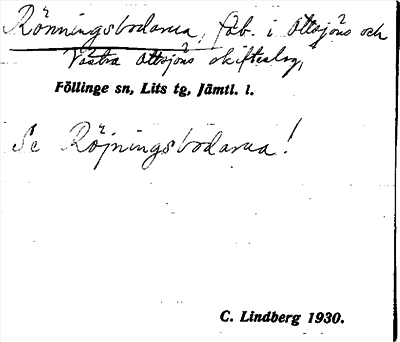 Rönningsbodarna, fäb. i Ottsjöns och
Västra Ottsjöns skifteslag,
Föllinge sn, Lits tg, Jämtl. l.
Se Röjningsbodarna!
C. Lindberg 1930.